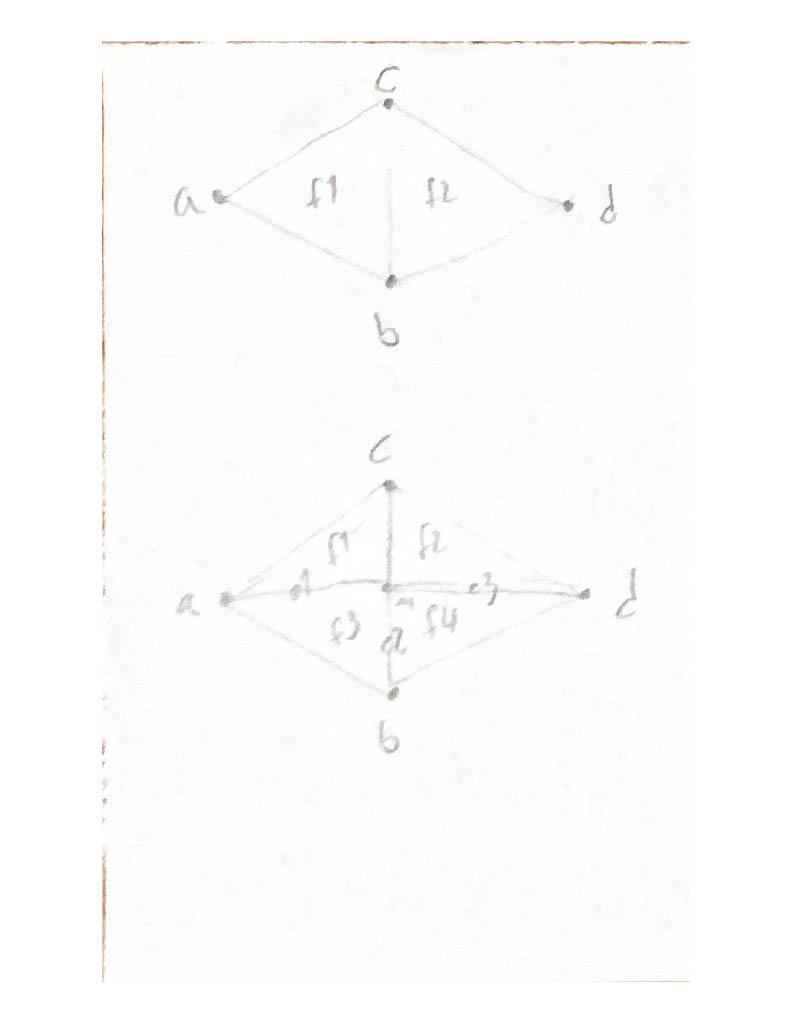 c
a f1 f2 d
b
c
f1 f2
a e1 m e3 d
f3 f4
e2
b